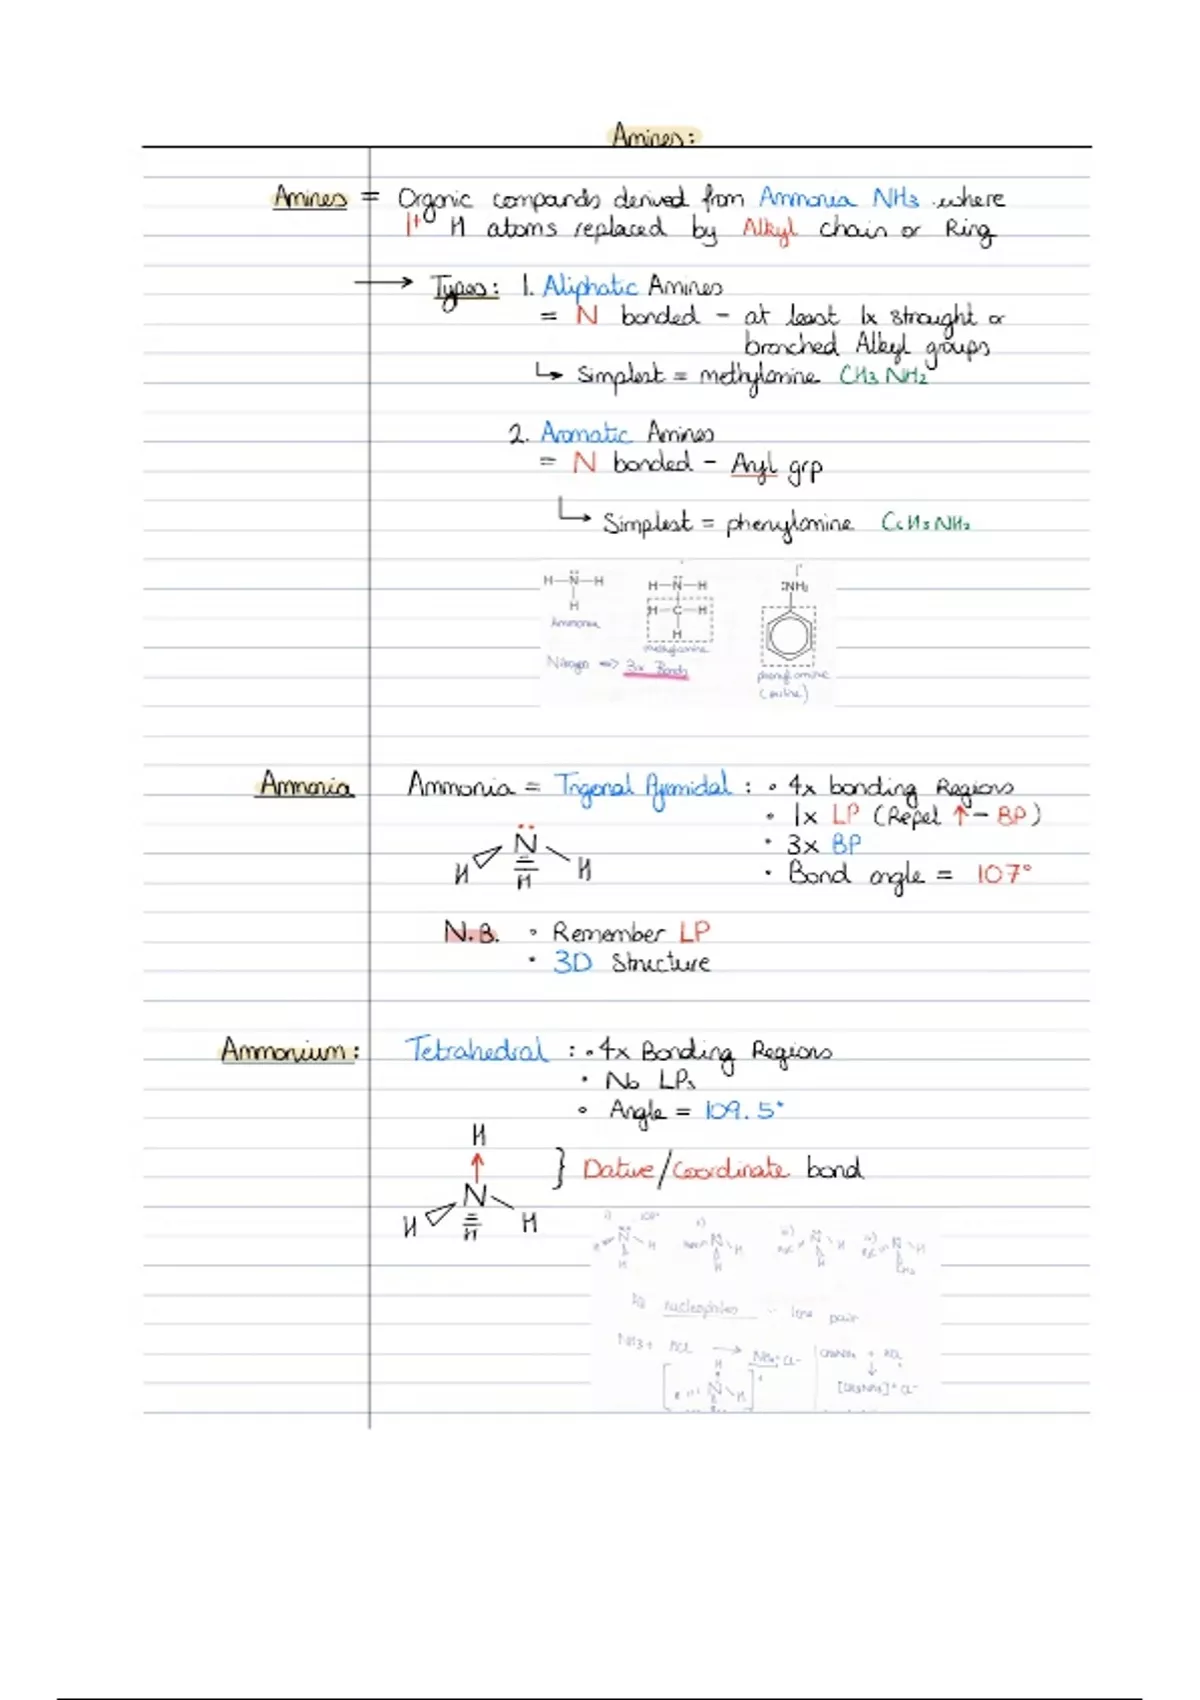 Amines:
Amines = Organic compounds derived from Ammonia NH3 where
1+ H atoms replaced by Alkyl chain or Ring
→ Types: 1. Aliphatic Amines
= N bonded - at least 1x straight or
branched Alkyl groups
↳ Simplest = methylamine CH3NH2
2. Aromatic Amines
= N bonded - Aryl grp
↳ Simplest = phenylamine C6H5NH2
H-N-H H-N-H :NH2
H H-C-H
Ammonia H
methylamine
Nitrogen => 3x Bonds phenylamine
Ammonia Ammonia = Trigonal Pyramidal : • 4x bonding Regions
• 1x LP (Repel ↑ - BP)
N • 3x BP
H H H • Bond angle = 107°
N.B. • Remember LP
• 3D Structure
Ammonium: Tetrahedral : • 4x Bonding Regions
• No LPs
• Angle = 109.5°
H
↑ } Dative/Coordinate bond
N
H H H
nucleophiles - lone pair
NH3 + HCl → NH4+Cl-